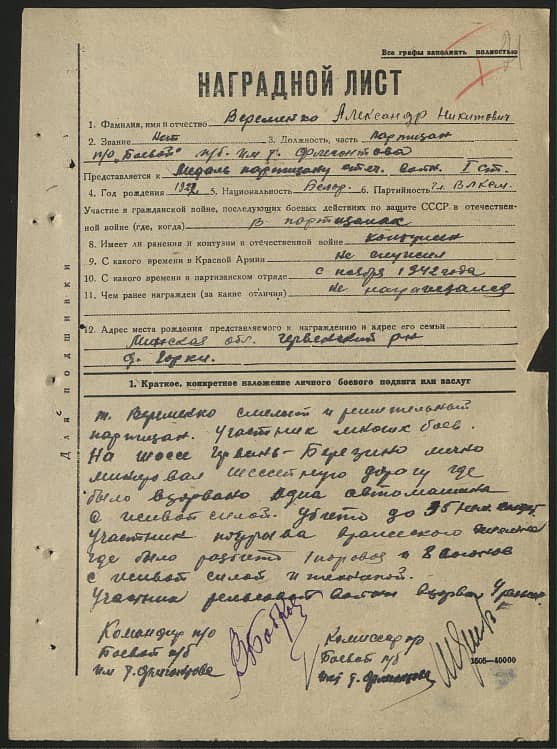 Все графы заполнять полностью
НАГРАДНОЙ ЛИСТ
1. Фамилия, имя и отчество Веременко Александр Никитович
2. Звание Нет 3. Должность, часть партизан
п/о „Боевой" п/б. им т. Флегонтова
Представляется к Медаль партизану отеч. войн. I ст.
4. Год рождения 5. Национальность Белор. 6. Партийность чл. ВЛКСМ.
Участие в гражданской войне, последующих боевых действиях по защите СССР и отечествен-
ной войне (где, когда) В партизанах
8. Имеет ли ранения и контузии в отечественной войне контузия
9. С какого времени в Красной Армии Не служил
10. С какого времени в партизанском отряде с ноября 1942 года
11. Чем ранее награжден (за какие отличия) Не награждался
12. Адрес места рождения представляемого к награждению и адрес его семьи
Минская обл. Червенский р-н
д. Горки.
Для подшивки
1. Краткое, конкретное изложение личного боевого подвига или заслуг
т. Веременко смелый и решительный
партизан. Участник многих боев.
На шоссе Червень-Березино лично
минировал шоссейную дорогу где
было взорвано одна автомашина
с живой силой. Убито до 25
Участник подрыва вражеского эшелона
где было разбито 1 паровоз и 8 вагонов
с живой силой и техникой.
Участник рельсовой войны взорвал 4 рельс.
Командир п/о
Боевой п/б
им т. Флегонтова
Комиссар по
Боевой п/б
им т. Флегонтова
1505—40000